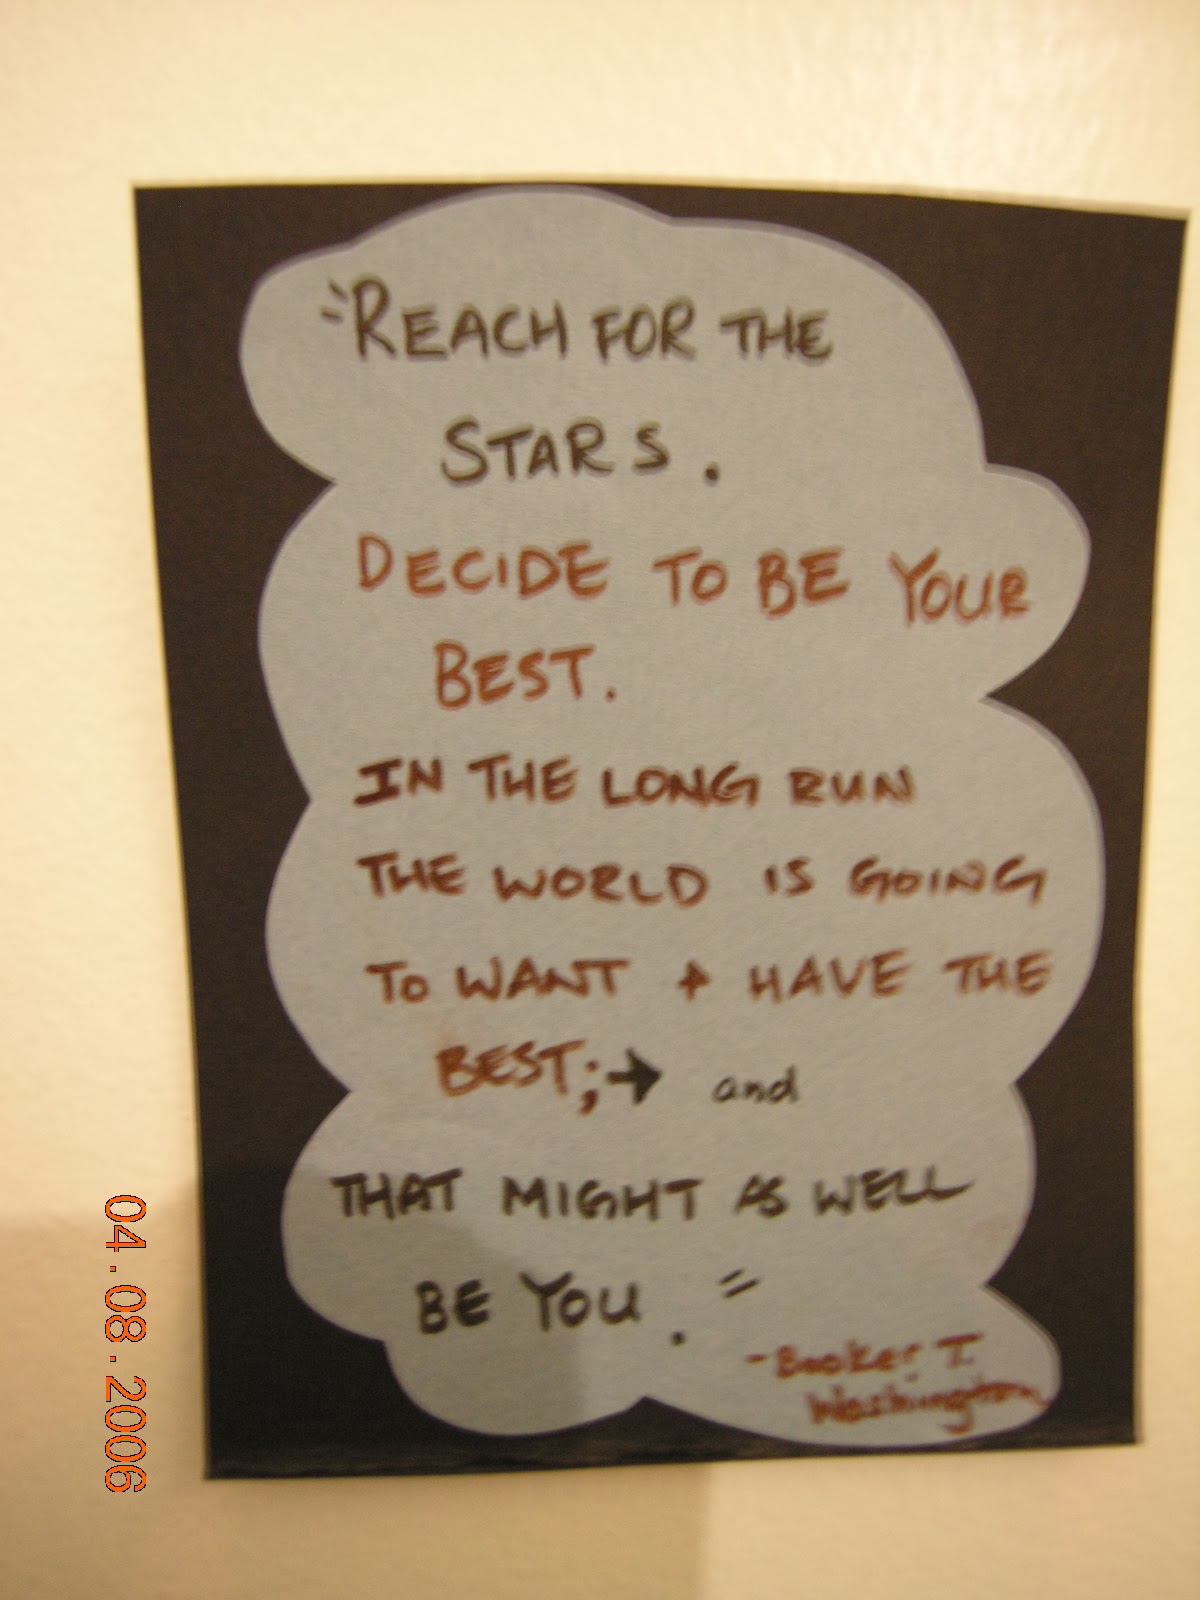 "REACH FOR THE
STARS.
DECIDE TO BE YOUR
BEST.
IN THE LONG RUN
THE WORLD IS GOING
TO WANT & HAVE THE
BEST;→ and
THAT MIGHT AS WELL
BE YOU."
-Booker T.
Washington
04.08.2006